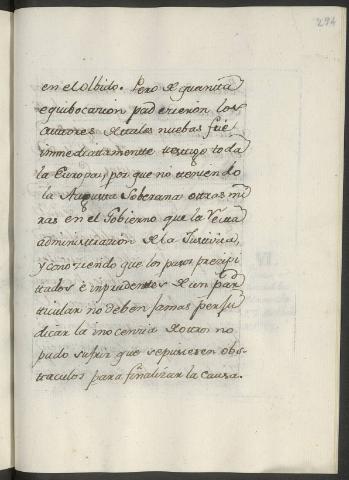 294
en el olbido. Pero de quanta
equibocacion padecieron los
autores de tales nuebas fué
immediatamente testigo toda
la Europa; por que no teniendo
la Augusta Soberana otras mi
ras en el Gobierno que la recta
administracion de la Justicia,
y conociendo que los pasos precipi
tados è inprudentes de un par
ticular no deben jamas perju
dicar la inocencia de otro no
pudo sufrir que se pusiesen obs-
taculos para finalizar la causa.